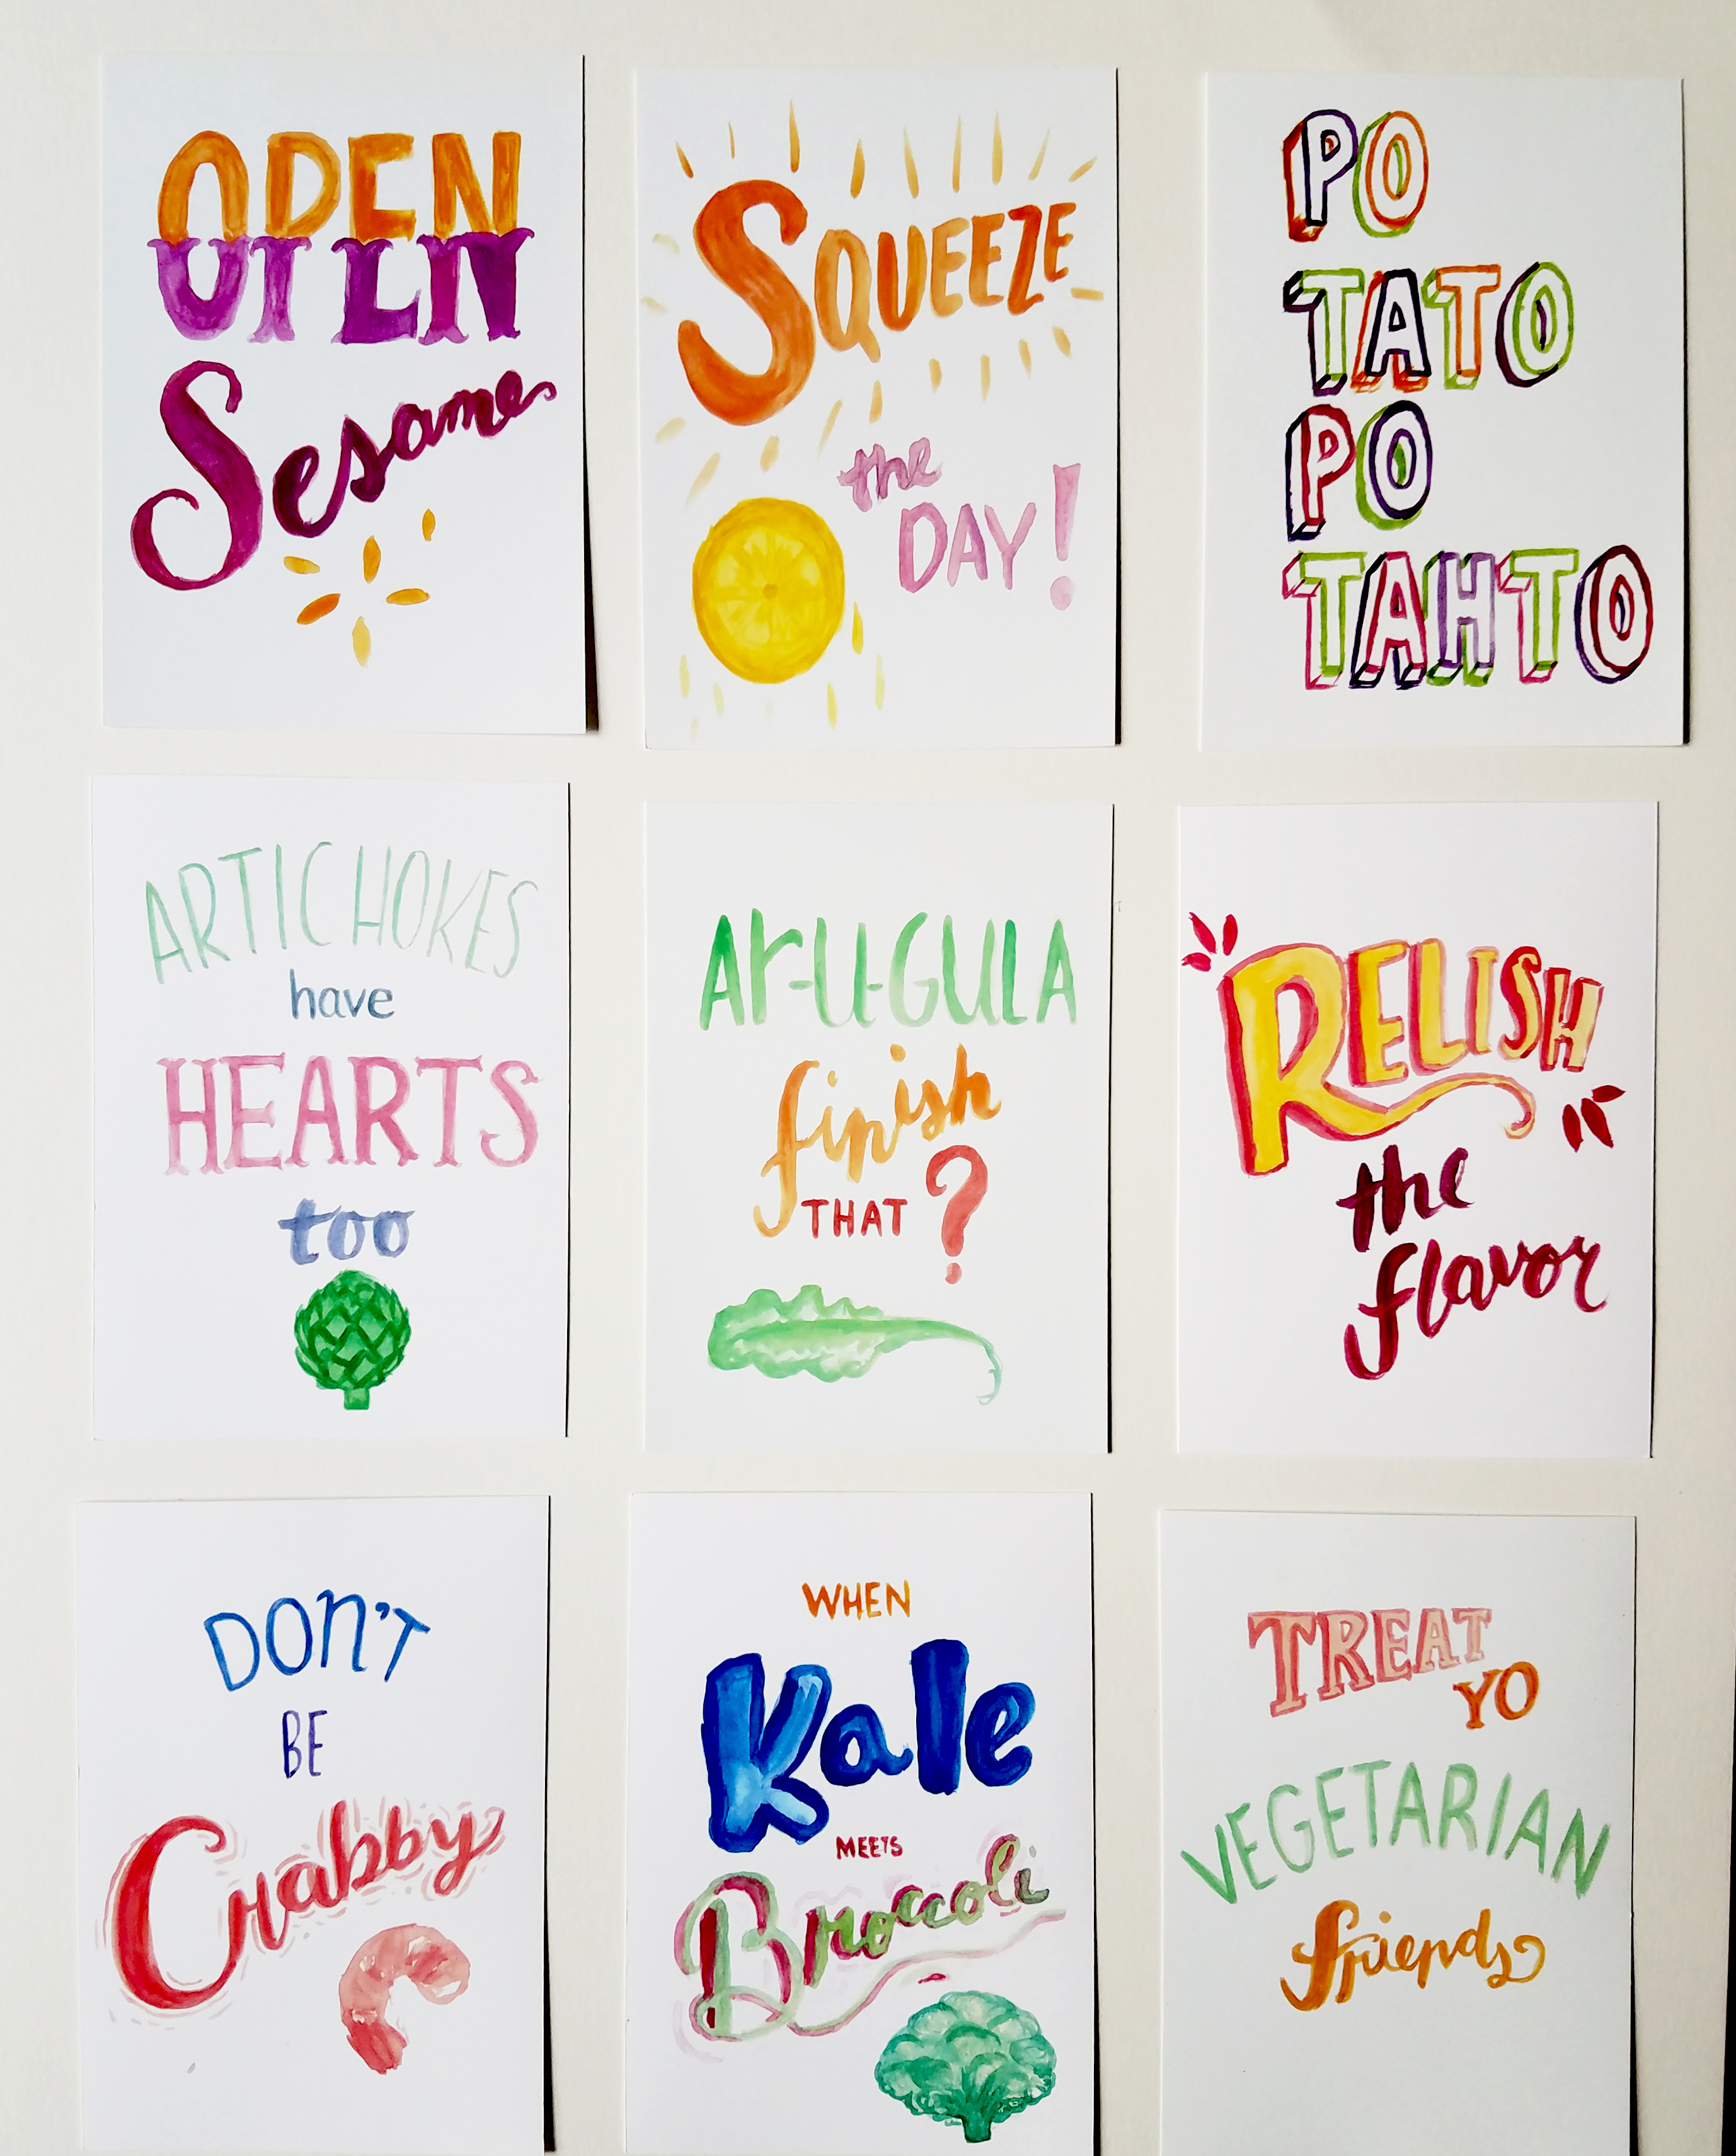 OPEN
Sesame
SQUEEZE
the
DAY!
PO
TATO
PO
TAHTO
ARTICHOKES
have
HEARTS
too
Ar-U-GULA
finish
THAT?
RELISH
the
flavor
DON'T
BE
Crabby
WHEN
Kale
MEETS
Broccoli
TREAT
YO
VEGETARIAN
friends